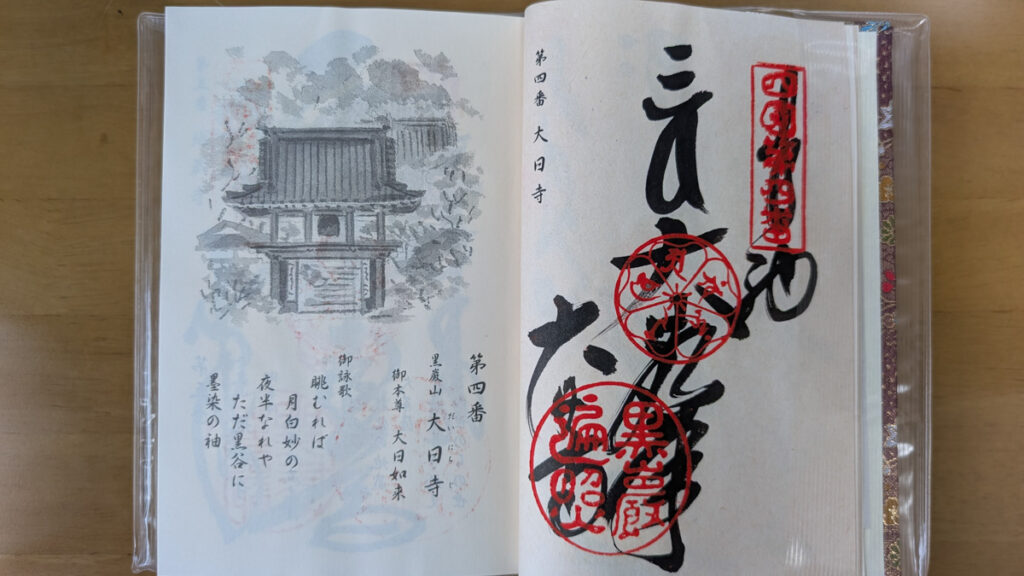 四国第四番
黒巖
遍照
第四番 大日寺
第四番
黒巖山 大日寺
御本尊 大日如来
御詠歌
眺むれば
月白妙の
夜半なれや
ただ黒谷に
墨染の袖